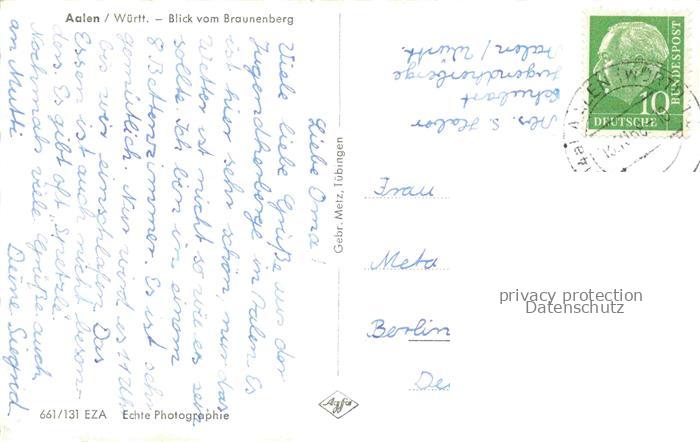 Aalen / Württ. – Blick vom Braunenberg
Liebe Oma!
Viele liebe Grüße aus der
Jugendherberge in Aalen. Es
ist hier sehr schön, nur das
Wetter ist nicht so wie es sein
sollte. Ich bin in einem
8 Bettenzimmer. Es ist sehr
gemütlich. Nur wird es 11 Uhr
bis wir einschlafen. Das
Essen ist auch nicht beson-
ders. Es gibt oft "Spetzle".
Nochmals viele Grüße auch
an Mutti
Deine Siegrid
661/131 EZA Echte Photographie
Gebr. Metz, Tübingen
Agfa
Abs. S. Haber
Schubart
Jugendherberge
Aalen / Württ.
DEUTSCHE
BUNDESPOST
10
Frau
Meta
Berlin
privacy protection
Datenschutz